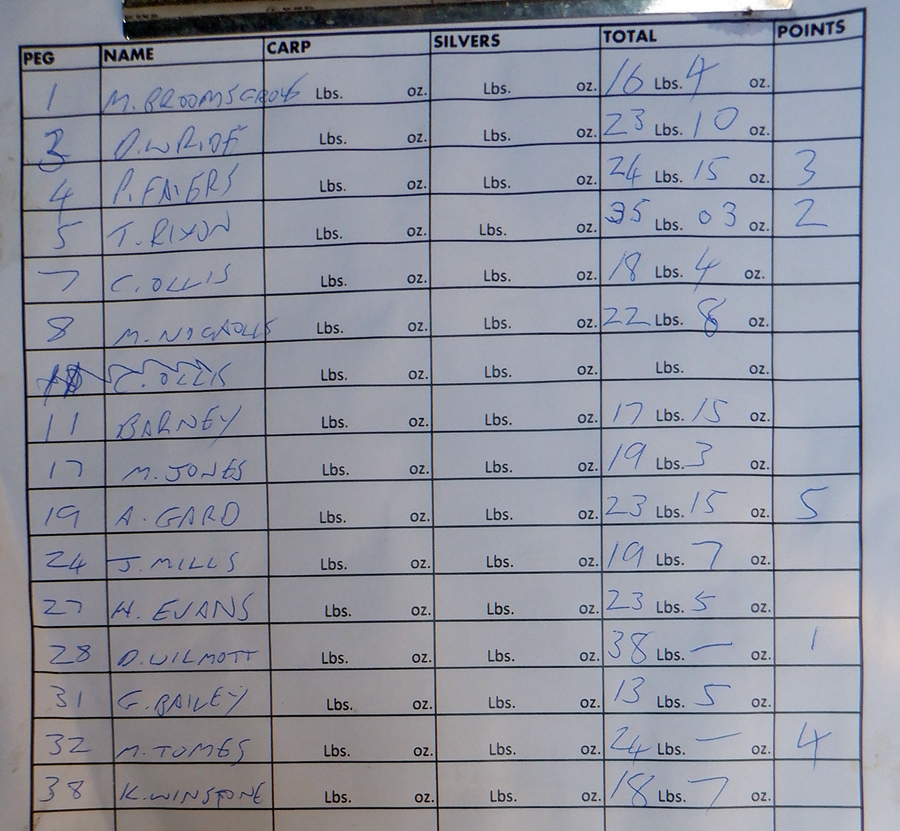 PEG NAME CARP SILVERS TOTAL POINTS
1 M. BROOMSGROVE Lbs. oz. Lbs. oz. 16 Lbs. 4 oz.
3 D. WRIDE Lbs. oz. Lbs. oz. 23 Lbs. 10 oz.
4 P. FAIERS Lbs. oz. Lbs. oz. 24 Lbs. 15 oz. 3
5 T. RIXON Lbs. oz. Lbs. oz. 35 Lbs. 03 oz. 2
7 C. OLLIS Lbs. oz. Lbs. oz. 18 Lbs. 4 oz.
8 M. NICHOLLS Lbs. oz. Lbs. oz. 22 Lbs. 8 oz.
C. OLLIS Lbs. oz. Lbs. oz. Lbs. oz.
11 BARNEY Lbs. oz. Lbs. oz. 17 Lbs. 15 oz.
17 M. JONES Lbs. oz. Lbs. oz. 19 Lbs. 3 oz.
19 A. GARD Lbs. oz. Lbs. oz. 23 Lbs. 15 oz. 5
24 J. MILLS Lbs. oz. Lbs. oz. 19 Lbs. 7 oz.
27 H. EVANS Lbs. oz. Lbs. oz. 23 Lbs. 5 oz.
28 D. WILMOTT Lbs. oz. Lbs. oz. 38 Lbs. — oz. 1
31 G. BAILEY Lbs. oz. Lbs. oz. 13 Lbs. 5 oz.
32 M. TOMES Lbs. oz. Lbs. oz. 24 Lbs. — oz. 4
38 K. WINSTONE Lbs. oz. Lbs. oz. 18 Lbs. 7 oz.